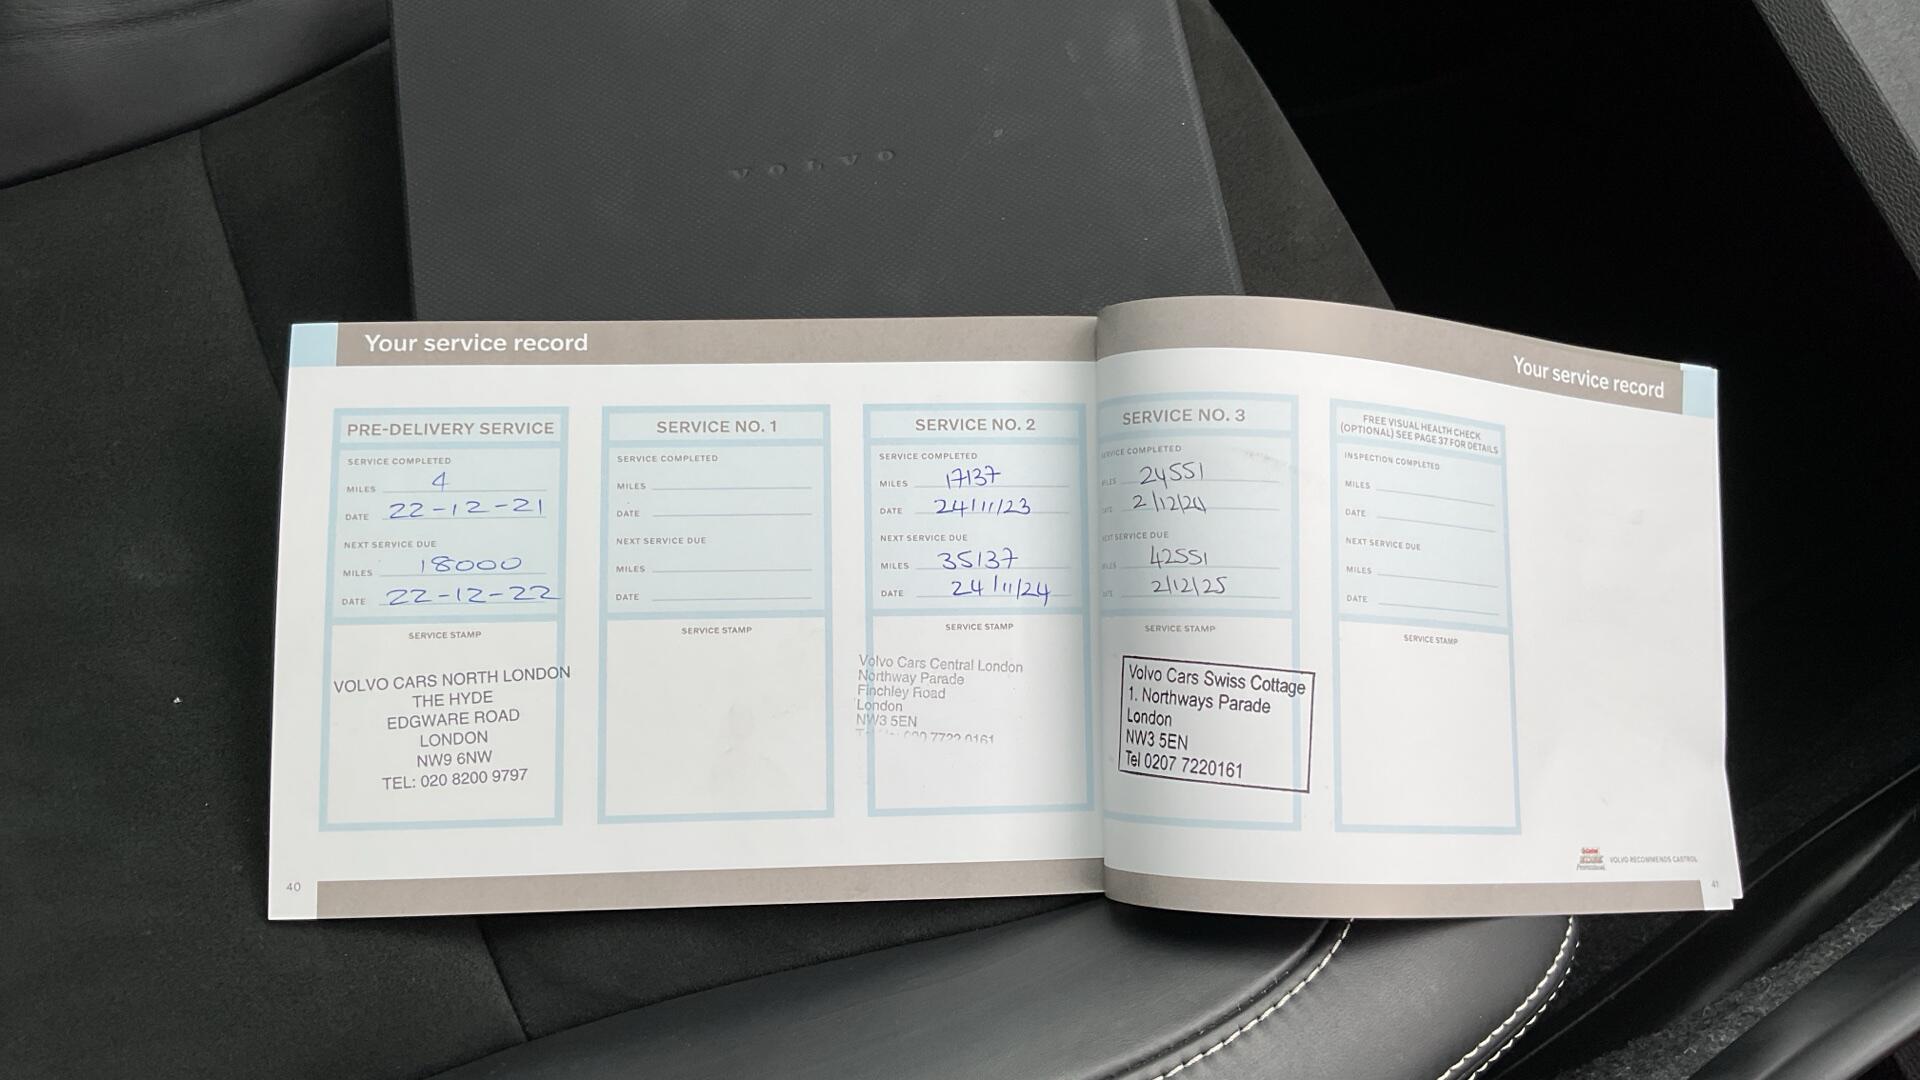 VOLVO
Your service record
PRE-DELIVERY SERVICE
SERVICE COMPLETED
MILES 4
DATE 22-12-21
NEXT SERVICE DUE
MILES 18000
DATE 22-12-22
SERVICE STAMP
VOLVO CARS NORTH LONDON
THE HYDE
EDGWARE ROAD
LONDON
NW9 6NW
TEL: 020 8200 9797
SERVICE NO. 1
SERVICE COMPLETED
MILES
DATE
NEXT SERVICE DUE
MILES
DATE
SERVICE STAMP
SERVICE NO. 2
SERVICE COMPLETED
MILES 17137
DATE 24/11/23
NEXT SERVICE DUE
MILES 35137
DATE 24/11/24
SERVICE STAMP
Volvo Cars Central London
Northway Parade
Finchley Road
London
NW3 5EN
020 7722 0161
40
Your service record
SERVICE NO. 3
SERVICE COMPLETED
MILES 24551
DATE 2/12/24
NEXT SERVICE DUE
MILES 42551
DATE 2/12/25
SERVICE STAMP
Volvo Cars Swiss Cottage
1. Northways Parade
London
NW3 5EN
Tel 0207 7220161
FREE VISUAL HEALTH CHECK
(OPTIONAL) SEE PAGE 37 FOR DETAILS
INSPECTION COMPLETED
MILES
DATE
NEXT SERVICE DUE
MILES
DATE
SERVICE STAMP
Castrol
EDGE
Professional
VOLVO RECOMMENDS CASTROL
41